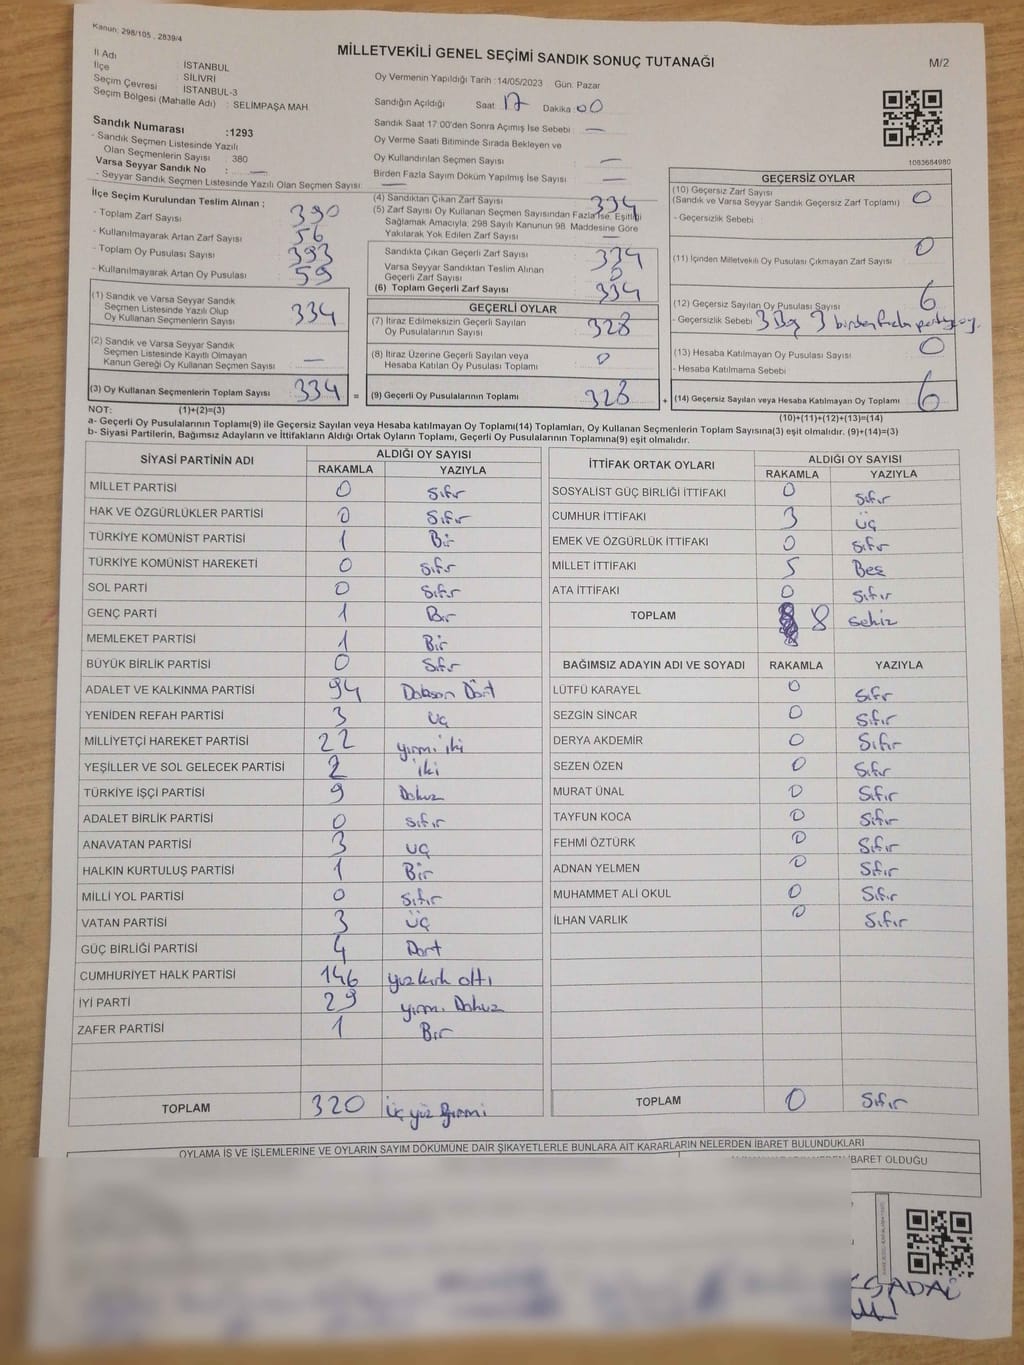 Kanun: 298/105 , 2839/4
MİLLETVEKİLİ GENEL SEÇİMİ SANDIK SONUÇ TUTANAĞI
M/2
İl Adı İSTANBUL
İlçe SİLİVRİ
Seçim Çevresi İSTANBUL-3
Seçim Bölgesi (Mahalle Adı) : SELİMPAŞA MAH
Sandık Numarası :1293
- Sandık Seçmen Listesinde Yazılı
Olan Seçmenlerin Sayısı : 380
Varsa Seyyar Sandık No : —
- Seyyar Sandık Seçmen Listesinde Yazılı Olan Seçmen Sayısı: —
Oy Vermenin Yapıldığı Tarih :14/05/2023 Gün: Pazar
Sandığın Açıldığı Saat 17 Dakika :00
Sandık Saat 17:00'den Sonra Açımış İse Sebebi : —
Oy Verme Saati Bitiminde Sırada Bekleyen ve
Oy Kullandırılan Seçmen Sayısı : —
Birden Fazla Sayım Döküm Yapılmış İse Sayısı : —
1083684980
İlçe Seçim Kurulundan Teslim Alınan ;
- Toplam Zarf Sayısı : 390
- Kullanılmayarak Artan Zarf Sayısı : 56
- Toplam Oy Pusulası Sayısı : 393
- Kullanılmayarak Artan Oy Pusulası : 59
(1) Sandık ve Varsa Seyyar Sandık
Seçmen Listesinde Yazılı Olup
Oy Kullanan Seçmenlerin Sayısı : 334
(2) Sandık ve Varsa Seyyar Sandık
Seçmen Listesinde Kayıtlı Olmayan
Kanun Gereği Oy Kullanan Seçmen Sayısı : —
(3) Oy Kullanan Seçmenlerin Toplam Sayısı : 334 =
(4) Sandıktan Çıkan Zarf Sayısı : 334
(5) Zarf Sayısı Oy Kullanan Seçmen Sayısından Fazla ise, Eşitliği
Sağlamak Amacıyla, 298 Sayılı Kanunun 98. Maddesine Göre
Yakılarak Yok Edilen Zarf Sayısı : —
Sandıkta Çıkan Geçerli Zarf Sayısı : 334
Varsa Seyyar Sandıktan Teslim Alınan
Geçerli Zarf Sayısı : 0
(6) Toplam Geçerli Zarf Sayısı : 334
GEÇERLİ OYLAR
(7) İtiraz Edilmeksizin Geçerli Sayılan
Oy Pusulalarının Sayısı : 328
(8) İtiraz Üzerine Geçerli Sayılan veya
Hesaba Katılan Oy Pusulası Toplamı : 0
(9) Geçerli Oy Pusulalarının Toplamı : 328 +
GEÇERSİZ OYLAR
(10) Geçersiz Zarf Sayısı
(Sandık ve Varsa Seyyar Sandık Geçersiz Zarf Toplamı) : 0
- Geçersizlik Sebebi :
(11) İçinden Milletvekili Oy Pusulası Çıkmayan Zarf Sayısı : 0
(12) Geçersiz Sayılan Oy Pusulası Sayısı : 6
- Geçersizlik Sebebi : 3 Boş 3 birden fazla partiye oy.
(13) Hesaba Katılmayan Oy Pusulası Sayısı : 0
- Hesaba Katılmama Sebebi :
(14) Geçersiz Sayılan veya Hesaba Katılmayan Oy Toplamı : 6
NOT: (1)+(2)=(3) (10)+(11)+(12)+(13)=(14)
a- Geçerli Oy Pusulalarının Toplamı(9) ile Geçersiz Sayılan veya Hesaba katılmayan Oy Toplamı(14) Toplamları, Oy Kullanan Seçmenlerin Toplam Sayısına(3) eşit olmalıdır. (9)+(14)=(3)
b- Siyasi Partilerin, Bağımsız Adayların ve İttifakların Aldığı Ortak Oyların Toplamı, Geçerli Oy Pusulalarının Toplamına(9) eşit olmalıdır.
SİYASİ PARTİNİN ADI ALDIĞI OY SAYISI
RAKAMLA YAZIYLA
MİLLET PARTİSİ 0 Sıfır
HAK VE ÖZGÜRLÜKLER PARTİSİ 0 Sıfır
TÜRKİYE KOMÜNİST PARTİSİ 1 Bir
TÜRKİYE KOMÜNİST HAREKETİ 0 Sıfır
SOL PARTİ 0 Sıfır
GENÇ PARTİ 1 Bir
MEMLEKET PARTİSİ 1 Bir
BÜYÜK BİRLİK PARTİSİ 0 Sıfır
ADALET VE KALKINMA PARTİSİ 94 Doksan Dört
YENİDEN REFAH PARTİSİ 3 üç
MİLLİYETÇİ HAREKET PARTİSİ 22 yirmi iki
YEŞİLLER VE SOL GELECEK PARTİSİ 2 iki
TÜRKİYE İŞÇİ PARTİSİ 9 Dokuz
ADALET BİRLİK PARTİSİ 0 Sıfır
ANAVATAN PARTİSİ 3 üç
HALKIN KURTULUŞ PARTİSİ 1 Bir
MİLLİ YOL PARTİSİ 0 Sıfır
VATAN PARTİSİ 3 üç
GÜÇ BİRLİĞİ PARTİSİ 4 Dört
CUMHURİYET HALK PARTİSİ 146 yüz kırk altı
İYİ PARTİ 29 yirmi Dokuz
ZAFER PARTİSİ 1 Bir
TOPLAM 320 üç yüz yirmi
İTTİFAK ORTAK OYLARI ALDIĞI OY SAYISI
RAKAMLA YAZIYLA
SOSYALİST GÜÇ BİRLİĞİ İTTİFAKI 0 Sıfır
CUMHUR İTTİFAKI 3 üç
EMEK VE ÖZGÜRLÜK İTTİFAKI 0 Sıfır
MİLLET İTTİFAKI 5 Beş
ATA İTTİFAKI 0 Sıfır
TOPLAM 8 sekiz
BAĞIMSIZ ADAYIN ADI VE SOYADI RAKAMLA YAZIYLA
LÜTFÜ KARAYEL 0 Sıfır
SEZGİN SİNCAR 0 Sıfır
DERYA AKDEMİR 0 Sıfır
SEZEN ÖZEN 0 Sıfır
MURAT ÜNAL 0 Sıfır
TAYFUN KOCA 0 Sıfır
FEHMİ ÖZTÜRK 0 Sıfır
ADNAN YELMEN 0 Sıfır
MUHAMMET ALİ OKUL 0 Sıfır
İLHAN VARLIK 0 Sıfır
TOPLAM 0 Sıfır
OYLAMA İŞ VE İŞLEMLERİNE VE OYLARIN SAYIM DÖKÜMÜNE DAİR ŞİKAYETLERLE BUNLARA AİT KARARLARIN NELERDEN İBARET BULUNDUKLARI
İBARET OLDUĞU